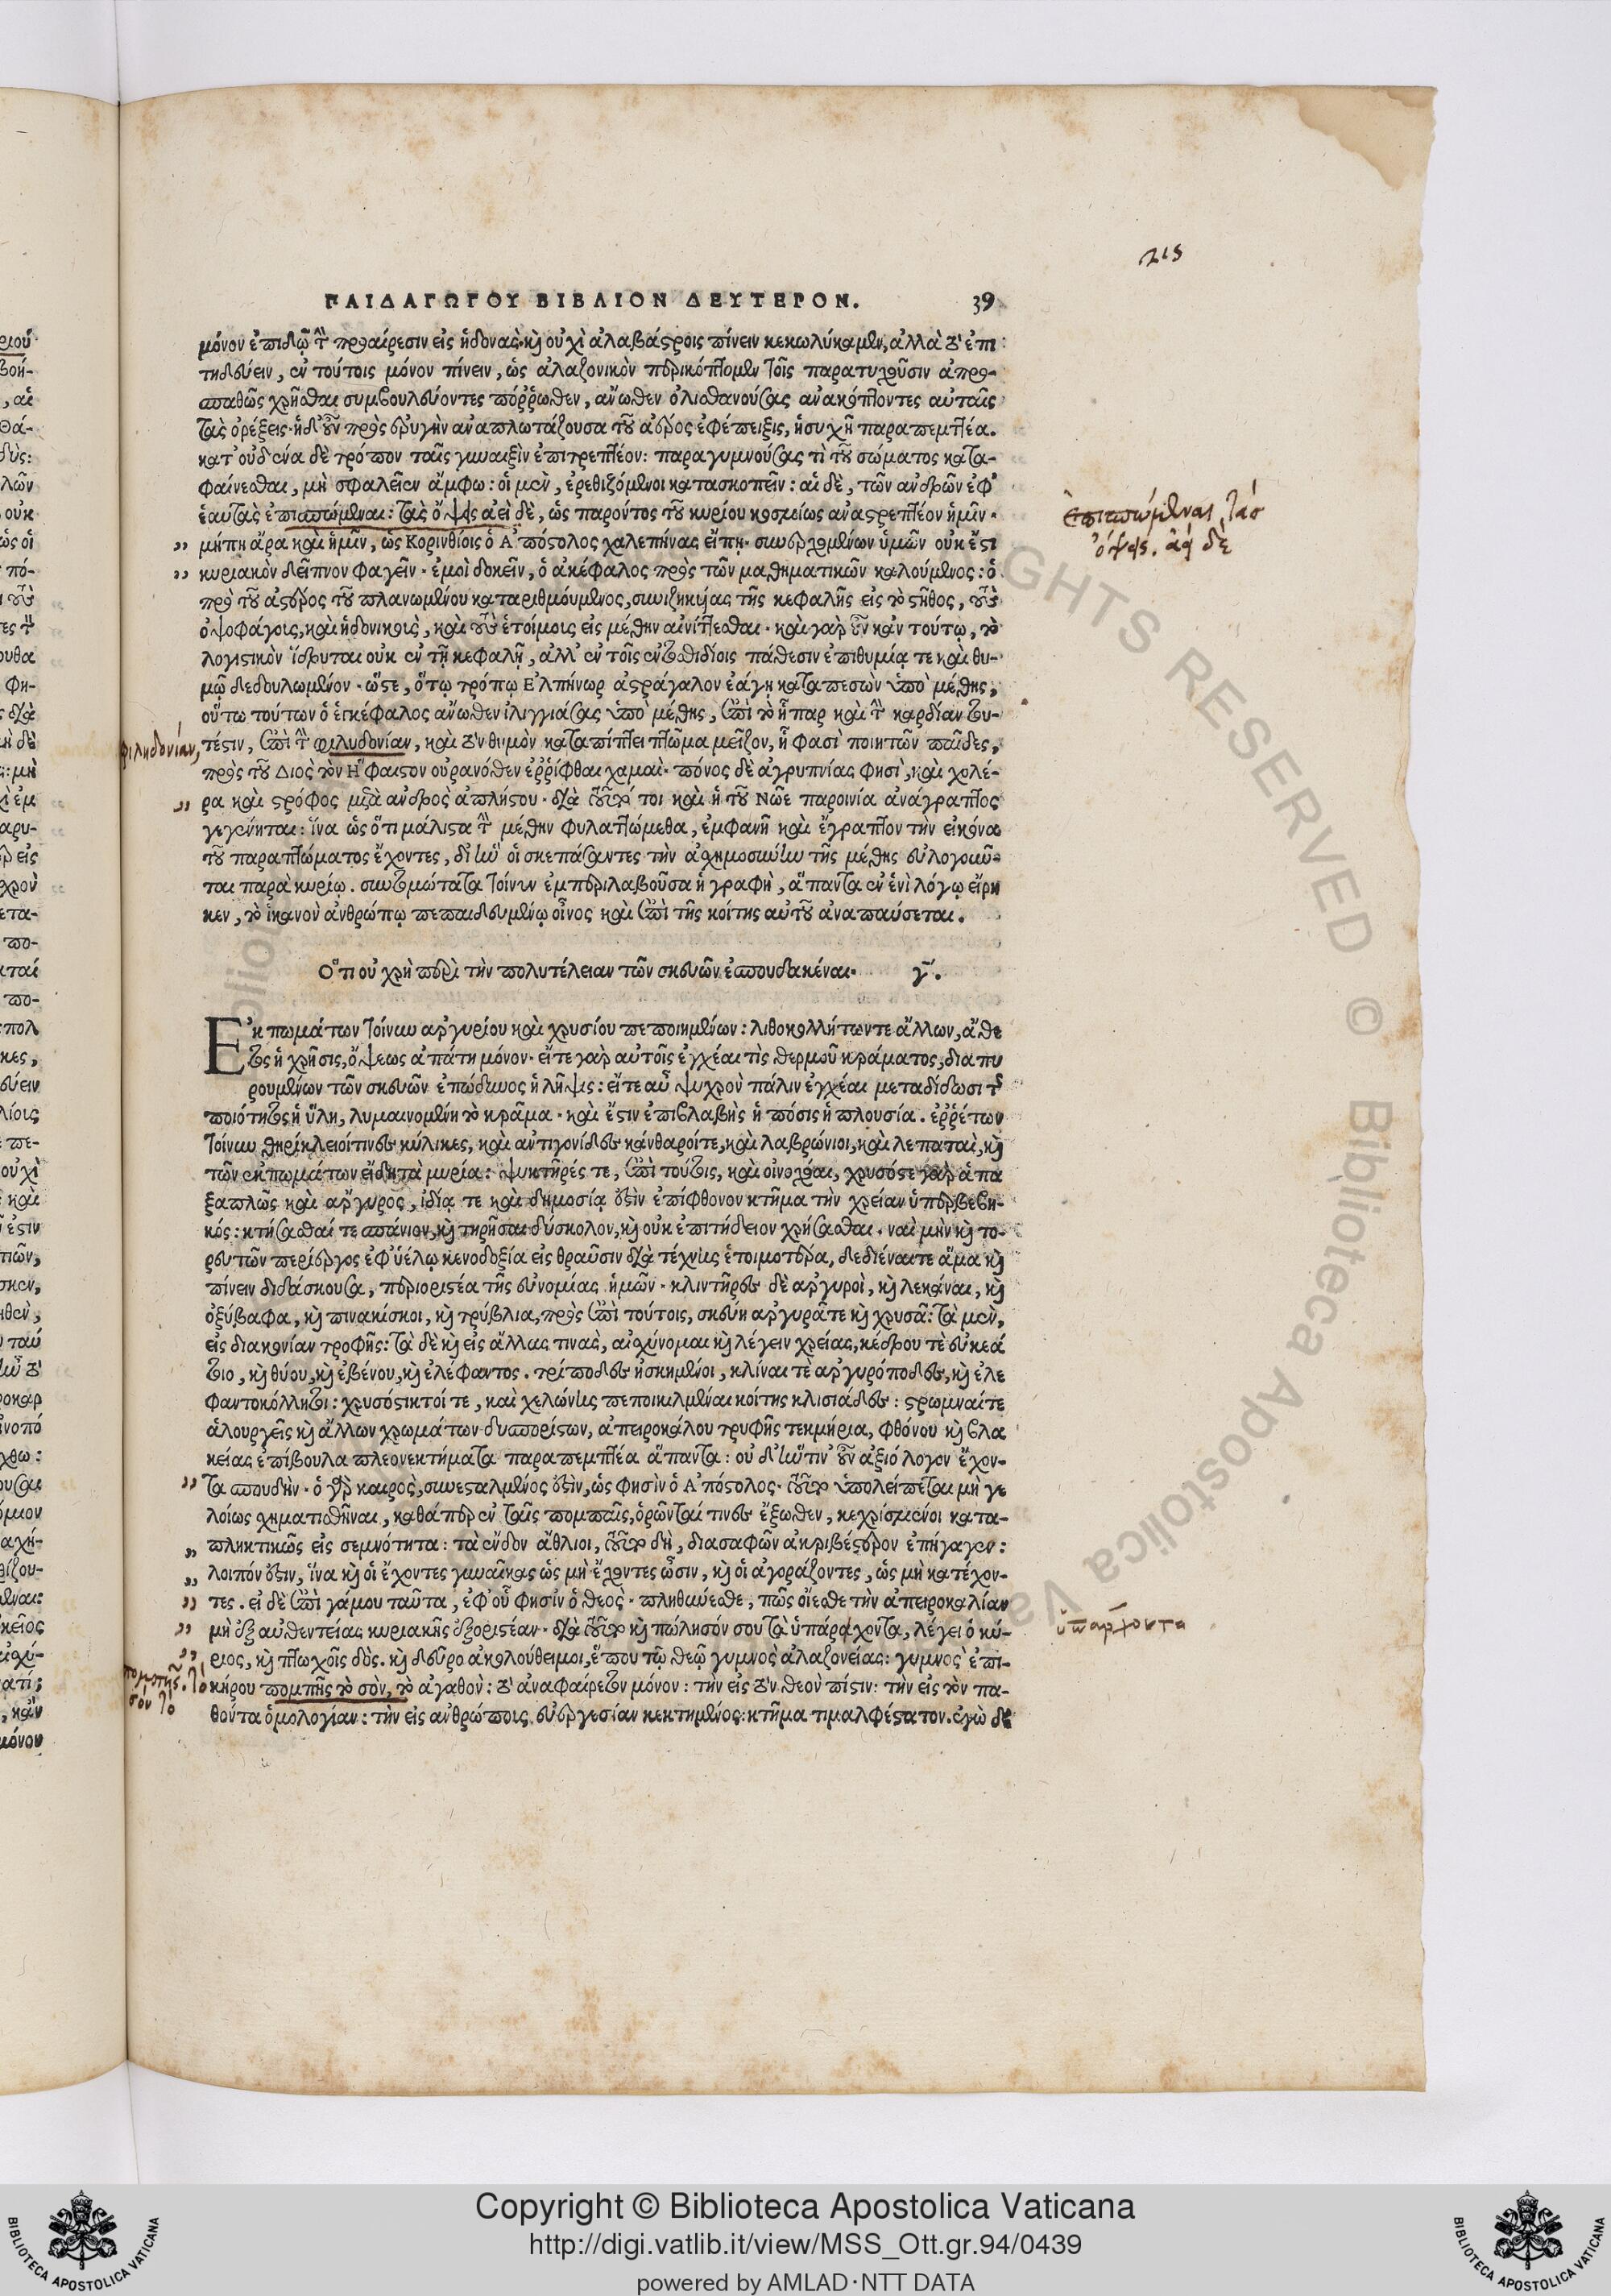 215
ΠΑΙΔΑΓΩΓΟΥ ΒΙΒΛΙΟΝ ΔΕΥΤΕΡΟΝ. 39
μόνον ἐπιδῷ τὴν προαίρεσιν εἰς ἡδονάς· καὶ οὐχὶ ἀλαβάστροις πίνειν κεκωλύκαμεν, ἀλλὰ τὸ ἐπι
τηδεύειν, ἐν τούτοις μόνον πίνειν, ὡς ἀλαζονικὸν περικόπτομεν τοῖς παρατυχοῦσιν ἀπρο-
σπαθῶς χρῆσθαι συμβουλεύοντες πόῤῥωθεν, ἄνωθεν ὀλισθανούσας ἀνακόπτοντες αὐταῖς
τὰς ὀρέξεις· ἡ δ' οὖν πρὸς ἐρυγὴν ἀναπλωτάζουσα τοῦ ἀέρος ἐφέπειξις, ἡσυχῆ παραπεμπτέα.
κατ' οὐδένα δὲ τρόπον ταῖς γυναιξὶν ἐπιτρεπτέον: παραγυμνούσας τὶ τοῦ σώματος κατα-
φαίνεσθαι, μὴ σφαλεῖεν ἄμφω: οἱ μὲν, ἐρεθιζόμενοι κατασκοπεῖν: αἱ δὲ, τῶν ἀνδρῶν ἐφ'
ἑαυτὰς ἐπισπώμεναι: τὰς ὄψεις ἀεὶ δὲ, ὡς παρόντος τοῦ κυρίου κοσμίως ἀναστρεπτέον ἡμῖν·
ἐπισπώμεναι, τάσ
ὄψεις. ἀεὶ δὲ
,, μήπη ἄρα καὶ ἡμῖν, ὡς Κορινθίοις ὁ Ἀπόστολος χαλεπήνας εἴπῃ· συνερχομένων ὑμῶν οὐκ ἔστι
,, κυριακὸν δεῖπνον φαγεῖν· ἐμοὶ δοκεῖν, ὁ ἀκέφαλος πρὸς τῶν μαθηματικῶν καλούμενος: ὁ
πρὸ τοῦ ἀστέρος τοῦ πλανωμένου καταριθμούμενος, συνιζηκυίας τῆς κεφαλῆς εἰς τὸ στῆθος, τοὺς
ὀψοφάγους, καὶ ἡδονικοὺς, καὶ τοὺς ἑτοίμους εἰς μέθην αἰνίττεσθαι· καὶ γὰρ οὖν κἀν τούτῳ, τὸ
λογιστικὸν ἵδρυται οὐκ ἐν τῇ κεφαλῇ, ἀλλ' ἐν τοῖς ἐντοσθιδίοις πάθεσιν ἐπιθυμίᾳ τε καὶ θυ-
μῷ δεδουλωμένον· ὥστε, ὅτῳ τρόπῳ Ἐλπήνωρ ἀστράγαλον ἐάγη καταπεσὼν ὑπὸ μέθης,
οὕτω τούτων ὁ ἐγκέφαλος ἄνωθεν ἰλιγγιάσας ὑπὸ μέθης, ἐπὶ τὸ ἧπαρ καὶ τὴν καρδίαν του-
φιληδονίαν,
τέστιν, ἐπὶ τὴν φιλυδονίαν, καὶ τὸν θυμὸν καταπίπτει πτῶμα μεῖζον, ἢ φασὶ ποιητῶν παῖδες,
πρὸς τοῦ Διὸς τὸν Ἥφαιστον οὐρανόθεν ἐῤῥίφθαι χαμαί· πόνος δὲ ἀγρυπνίας φησὶ, καὶ χολέ-
,, ρα καὶ στρόφος μετὰ ἀνδρὸς ἀπλήστου· διὰ τοῦτό τοι καὶ ἡ τοῦ Νῶε παροινία ἀνάγραπτος
γεγένηται: ἵνα ὡς ὅτι μάλιστα τὴν μέθην φυλαττώμεθα, ἐμφανῆ καὶ ἔγραπτον τὴν εἰκόνα
τοῦ παραπτώματος ἔχοντες, δι' ἣν οἱ σκεπάσαντες τὴν ἀσχημοσύνην τῆς μέθης εὐλογοῦν-
ται παρὰ κυρίῳ. συντομώτατα τοίνυν ἐμπεριλαβοῦσα ἡ γραφὴ, ἅπαντα ἐν ἑνὶ λόγῳ εἴρη
κεν, τὸ ἱκανὸν ἀνθρώπῳ πεπαιδευμένῳ οἶνος καὶ ἐπὶ τῆς κοίτης αὐτοῦ ἀναπαύσεται.
Ὅτι οὐ χρὴ περὶ τὴν πολυτέλειαν τῶν σκευῶν ἐσπουδακέναι· γ'.
Ἐκπωμάτων τοίνυν ἀργυρίου καὶ χρυσίου πεποιημένων: λιθοκολλήτων τε ἄλλων, ἄθε
τος ἡ χρῆσις, ὄψεως ἀπάτη μόνον· εἴτε γὰρ αὐτοῖς ἐγχέαι τὶς θερμοῦ κράματος, διαπυ
ρουμένων τῶν σκευῶν ἐπώδυνος ἡ λῆψις: εἴτε αὖ ψυχρὸν πάλιν ἐγχέαι μεταδίδωσι τῆς
ποιότητος ἡ ὕλη, λυμαινομένη τὸ κρᾶμα· καὶ ἔστιν ἐπιβλαβὴς ἡ πόσις ἡ πλουσία. ἐῤῥέτων
τοίνυν θηρίκλειοί τινες κύλικες, καὶ ἀντιγονίδες κάνθαροίτε, καὶ λαβρώνιοι, καὶ λεπαταὶ, καὶ
τῶν ἐκπωμάτων εἴδη τὰ μυρία: ψυκτῆρές τε, ἐπὶ τούτοις, καὶ οἰνοχόαι, χρυσός τε γὰρ ἁπα
ξαπλῶς καὶ ἄργυρος, ἰδίᾳ τε καὶ δημοσίᾳ ἐστὶν ἐπίφθονον κτῆμα τὴν χρείαν ὑπερβεβη-
κός: κτήσασθαί τε σπάνιον, καὶ τηρῆσαι δύσκολον, καὶ οὐκ ἐπιτήδειον χρήσασθαι· ναὶ μὴν καὶ το-
ρευτῶν περίεργος ἐφ' ὑέλῳ κενοδοξία εἰς θραῦσιν διὰ τέχνης ἑτοιμοτέρα, δεδιέναι τε ἅμα καὶ
πίνειν διδάσκουσα, περιοριστέα τῆς εὐνομίας ἡμῶν· κλιντῆρες δὲ ἀργυροὶ, καὶ λεκάναι, καὶ
ὀξύβαφα, καὶ πινακίσκοι, καὶ τρύβλια, πρὸς ἐπὶ τούτοις, σκεύη ἀργυρᾶ τε καὶ χρυσᾶ: τὰ μὲν,
εἰς διακονίαν τροφῆς: τὰ δὲ καὶ εἰς ἄλλας τινὰς, αἰσχύνομαι καὶ λέγειν χρείας, κέδρου τὲ εὐκεά
του, καὶ θύου, καὶ ἐβένου, καὶ ἐλέφαντος. τρίποδες ἠσκημένοι, κλίναι τὲ ἀργυρόποδες, καὶ ἐλε
φαντοκόλλητοι: χρυσόστικτοί τε, καὶ χελώνης πεποικιλμέναι κοίτης κλισιάδες: στρωμναίτε
ἁλουργεῖς καὶ ἄλλων χρωμάτων δυσπορίστων, ἀπειροκάλου τρυφῆς τεκμήρια, φθόνου καὶ βλα
κείας ἐπίβουλα πλεονεκτήματα παραπεμπτέα ἅπαντα: οὐδ' ἥντιν' οὖν ἀξιόλογον ἔχον-
,, τα σπουδὴν· ὁ γὰρ καιρὸς, συνεσταλμένος ἐστὶν, ὡς φησὶν ὁ Ἀπόστολος· τοῦτο ὑπολείπεται μὴ γε
λοίως σχηματισθῆναι, καθάπερ ἐν ταῖς πομπαῖς, ὁρῶνταί τινες ἔξωθεν, κεχρισμένοι κατα-
,, πληκτικῶς εἰς σεμνότητα: τὰ ἔνδον ἄθλιοι, τοῦτο δὴ, διασαφῶν ἀκριβέστερον ἐπήγαγεν:
,, λοιπόν ἐστιν, ἵνα καὶ οἱ ἔχοντες γυναῖκας ὡς μὴ ἔχοντες ὦσιν, καὶ οἱ ἀγοράζοντες, ὡς μὴ κατέχον-
,, τες. εἰ δὲ ἐπὶ γάμου ταῦτα, ἐφ' οὗ φησὶν ὁ θεὸς· πληθύνεσθε, πῶς οἴεσθε τὴν ἀπειροκαλίαν
,, μὴ ἐξ αὐθεντείας κυριακῆς ἐξοριστέαν· διὰ τοῦτο καὶ πώλησόν σου τὰ ὑπάρχοντα, λέγει ὁ κύ-
ὑπάρχοντα
,, ριος, καὶ πτωχοῖς δὸς. καὶ δεῦρο ἀκολούθει μοι, ἕπου τῷ θεῷ γυμνὸς ἀλαζονείας: γυμνὸς ἐπι-
πομπῆς. τὸ
σὸν τὸ
κήρου πομπῆς τὸ σὸν, τὸ ἀγαθὸν: τὸ ἀναφαίρετον μόνον: τὴν εἰς τὸν θεὸν πίστιν: τὴν εἰς τὸν πα-
θόντα ὁμολογίαν: τὴν εἰς ἀνθρώπους εὐεργεσίαν κεκτημένος: κτῆμα τιμαλφέστατον. ἐγὼ δὲ
RIGHTS RESERVED © Biblioteca Apostolica Vaticana
Copyright © Biblioteca Apostolica Vaticana
http://digi.vatlib.it/view/MSS_Ott.gr.94/0439
powered by AMLAD·NTT DATA
BIBLIOTECA APOSTOLICA VATICANA
BIBLIOTECA APOSTOLICA VATICANA